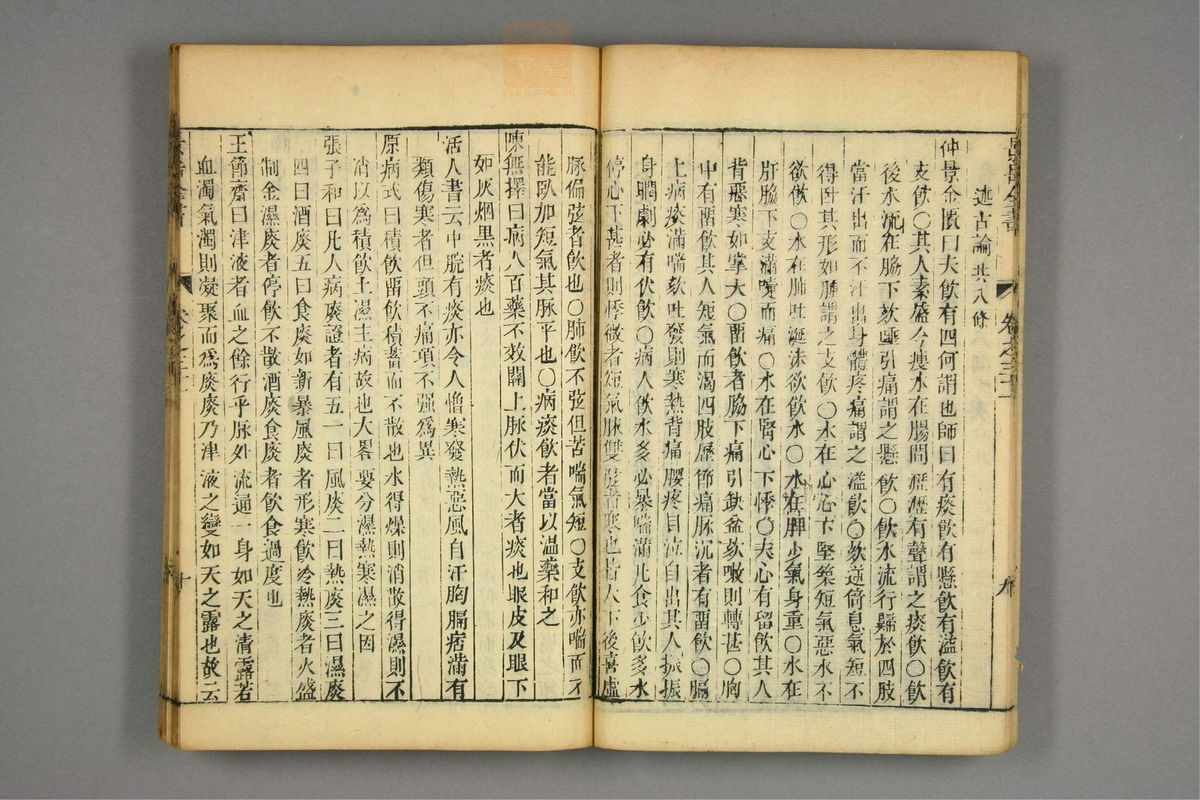 述古論共八條
仲景金匱曰夫飲有四何謂也師曰有痰飲有懸飲有溢飲有
支飲〇其人素盛今瘦水在腸間瀝瀝有聲謂之痰飲〇飲
後水流在脇下欬唾引痛謂之懸飲〇飲水流行歸於四肢
當汗出而不汗出身體疼痛謂之溢飲〇欬逆倚息氣短不
得臥其形如腫謂之支飲〇水在心心下堅築短氣惡水不
欲飲〇水在肺吐涎沫欲飲水〇水在脾少氣身重〇水在
肝脇下支滿嚏而痛〇水在腎心下悸〇夫心有留飲其人
背惡寒如掌大〇畱飲者脇下痛引缺盆欬嗽則轉甚〇胸
中有畱飲其人短氣而渴四肢歷節痛脉沉者有畱飲〇膈
上病痰滿喘欬吐發則寒熱背痛腰疼目泣自出其人振振
身瞤劇必有伏飲〇病人飲水多必暴喘滿凡食少飲多水
停心下甚者則悸微者短氣脉雙弦者寒也皆大下後喜虛
脉偏弦者飲也〇肺飲不弦但苦喘氣短〇支飲亦喘而不
能臥加短氣其脉平也〇病痰飲者當以溫藥和之
陳無擇曰病人百藥不效關上脉伏而大者痰也眼皮及眼下
如灰烟黑者痰也
活人書云中脘有痰亦令人憎寒發熱惡風自汗胸膈痞滿有
類傷寒者但頭不痛項不强爲異
原病式曰積飲畱飲積蓄而不散也水得燥則消散得濕則不
消以爲積飲土濕主病故也大畧要分濕熱寒濕之因
張子和曰凡人病痰證者有五一曰風痰二曰熱痰三曰濕痰
四曰酒痰五曰食痰如新暴風痰者形寒飲冷熱痰者火盛
制金濕痰者停飲不散酒痰食痰者飲食過度也
王節齋曰津液者血之餘行乎脉外流通一身如天之清露若
血濁氣濁則凝聚而爲痰痰乃津液之變如天之露也故云